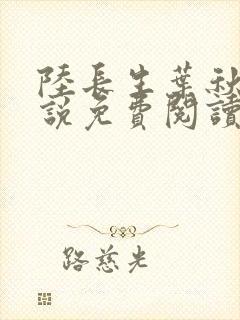 陸長生葉秋
說免費閱讀
路慈光